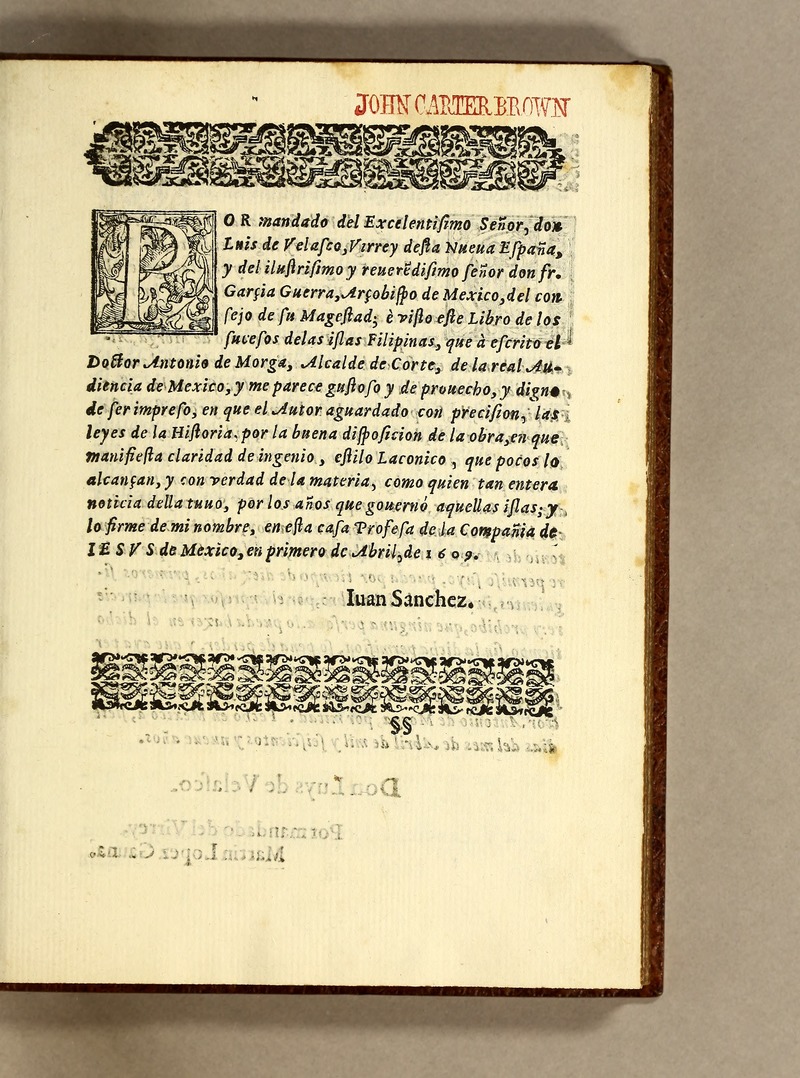 JOHN CARTER BROWN
POR mandado del Excelentiſimo Señor, don
Luis de Velaſco, Virrey deſta Nueua Eſpaña,
y del iluſtriſimo y reuerẽdiſimo ſeñor don fr.
Garçia Guerra, Arçobiſpo de Mexico, del con
ſejo de ſu Mageſtad; è viſto eſte Libro de los
ſuceſos delas iſlas Filipinas, que à eſcrito el
Doctor Antonio de Morga, Alcalde de Corte, de la real Au-
diencia de Mexico, y me parece guſtoſo y de prouecho, y digno
de ſer impreſo, en que el Autor aguardado con preciſion, las
leyes de la Hiſtoria, por la buena diſpoſicion de la obra, en que
manifieſta claridad de ingenio, eſtilo Laconico, que pocos lo
alcançan, y con verdad de la materia, como quien tan entera
noticia della tuuo, por los años que gouernó aquellas iſlas; y
lo firme de mi nombre, en eſta caſa Profeſa de la Compañia de
IESVS de Mexico, en primero de Abril, de 1609.
Iuan Sanchez.
§§
Don Luys de Velaſco.
Por mandado del Virrey.
Martin Lopez Gauna.